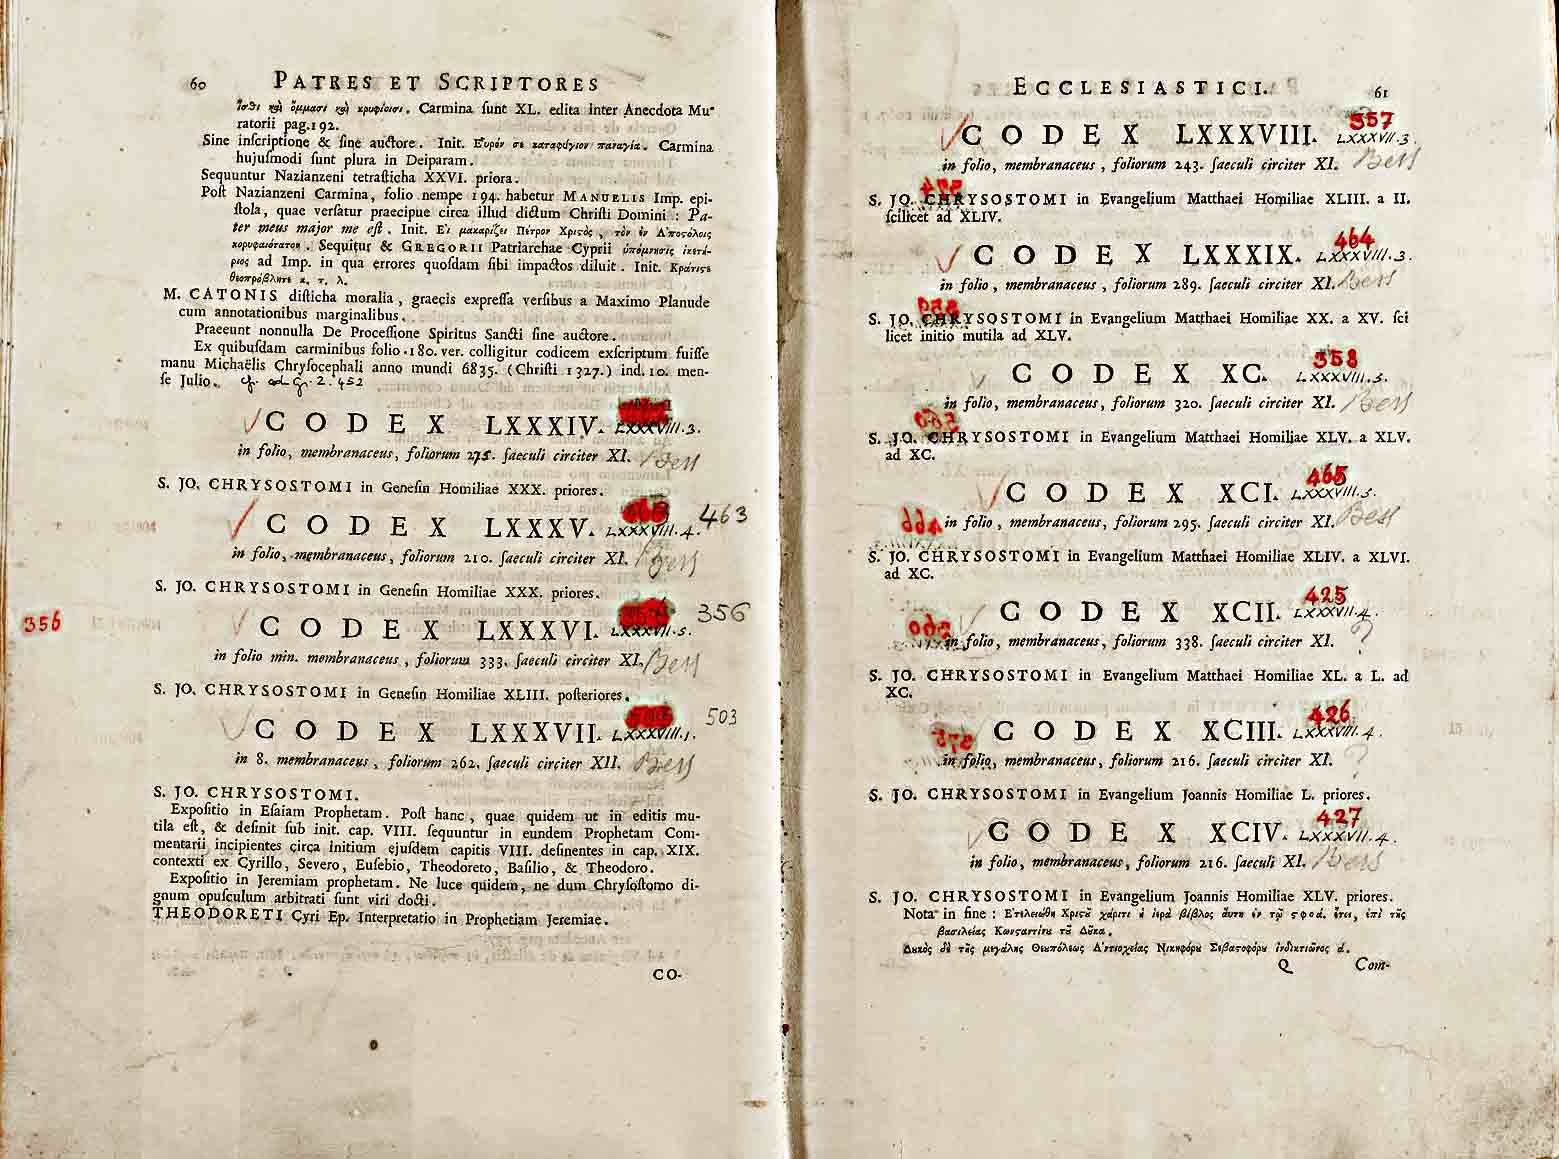 60 PATRES ET SCRIPTORES
Carmina ſunt XL. edita inter Anecdota Mu-
ratorii pag. 192.
Sine inſcriptione & ſine auctore. Init. Εὑρόν σε καταφύγιον παναγία. Carmina
hujuſmodi ſunt plura in Deiparam.
Sequuntur Nazianzeni tetraſticha XXVI. priora.
Poſt Nazianzeni Carmina, folio nempe 194. habetur MANUELIS Imp. epi-
ſtola, quae verſatur praecipue circa illud dictum Chriſti Domini: Pa-
ter meus major me eſt. Init. Εἰ μακαρίζει Πέτρον Χριστὸς, τὸν ἐν Ἀποστόλοις
κορυφαιότατον. Sequitur & GREGORII Patriarchae Cyprii ὑπόμνησις ἱκετή-
ριος ad Imp. in qua errores quoſdam ſibi impactos diluit. Init. Κράτιστε
θεοπρόβλητε κ. τ. λ.
M. CATONIS diſticha moralia, graecis expreſſa verſibus a Maximo Planude
cum annotationibus marginalibus.
Praeeunt nonnulla De Proceſſione Spiritus Sancti ſine auctore.
Ex quibuſdam carminibus folio 180. ver. colligitur codicem exſcriptum fuiſſe
manu Michaëlis Chryſocephali anno mundi 6835. (Chriſti 1327.) ind. 10. men-
ſe Julio.
CODEX LXXXIV. LXXXVIII.3.
in folio, membranaceus, foliorum 275. ſaeculi circiter XI. Bess
S. JO. CHRYSOSTOMI in Geneſin Homiliae XXX. priores.
CODEX LXXXV. LXXXVIII.4. 463
in folio, membranaceus, foliorum 210. ſaeculi circiter XI. Bess
S. JO. CHRYSOSTOMI in Geneſin Homiliae XXX. priores.
356 CODEX LXXXVI. LXXXVII.5. 356
in folio min. membranaceus, foliorum 333. ſaeculi circiter XI. Bess
S. JO. CHRYSOSTOMI in Geneſin Homiliae XLIII. poſteriores.
CODEX LXXXVII. LXXXVIII.1. 503
in 8. membranaceus, foliorum 262. ſaeculi circiter XII. Bess
S. JO. CHRYSOSTOMI.
Expoſitio in Eſaiam Prophetam. Poſt hanc, quae quidem ut in editis mu-
tila eſt, & deſinit ſub init. cap. VIII. ſequuntur in eundem Prophetam Com-
mentarii incipientes circa initium ejuſdem capitis VIII. deſinentes in cap. XIX.
contexti ex Cyrillo, Severo, Euſebio, Theodoreto, Baſilio, & Theodoro.
Expoſitio in Jeremiam prophetam. Ne luce quidem, ne dum Chryſoſtomo di-
gnum opuſculum arbitrati ſunt viri docti.
THEODORETI Cyri Ep. Interpretatio in Prophetiam Jeremiae.
CO-
ECCLESIASTICI. 61
357
CODEX LXXXVIII. LXXXVII.3.
in folio, membranaceus, foliorum 243. ſaeculi circiter XI. Bess
S. JO. CHRYSOSTOMI in Evangelium Matthaei Homiliae XLIII. a II.
ſcilicet ad XLIV.
464
CODEX LXXXIX. LXXXVIII.3.
in folio, membranaceus, foliorum 289. ſaeculi circiter XI. Bess
S. JO. CHRYSOSTOMI in Evangelium Matthaei Homiliae XX. a XV. ſci
licet initio mutila ad XLV.
358
CODEX XC. LXXXVIII.5.
in folio, membranaceus, foliorum 320. ſaeculi circiter XI. Bess
S. JO. CHRYSOSTOMI in Evangelium Matthaei Homiliae XLV. a XLV.
ad XC.
465
CODEX XCI. LXXXVIII.5.
in folio, membranaceus, foliorum 295. ſaeculi circiter XI. Bess
S. JO. CHRYSOSTOMI in Evangelium Matthaei Homiliae XLIV. a XLVI.
ad XC.
425
CODEX XCII. LXXXVII.4.
in folio, membranaceus, foliorum 338. ſaeculi circiter XI. ?
S. JO. CHRYSOSTOMI in Evangelium Matthaei Homiliae XL. a L. ad
XC.
426
CODEX XCIII. LXXXVIII.4.
in folio, membranaceus, foliorum 216. ſaeculi circiter XI. ?
S. JO. CHRYSOSTOMI in Evangelium Joannis Homiliae L. priores.
427
CODEX XCIV. LXXXVII.4.
in folio, membranaceus, foliorum 216. ſaeculi XI. Bess
S. JO. CHRYSOSTOMI in Evangelium Joannis Homiliae XLV. priores.
Nota in fine: Ἐτελειώθη Χριστοῦ χάριτι ἡ ἱερὰ βίβλος αὕτη ἐν τῷ ϛφοα. ἔτει, ἐπὶ τῆς
βασιλείας Κωνσταντίνου τοῦ Δούκα.
Δουκὸς δὲ τῆς μεγάλης Θεουπόλεως Ἀντιοχείας Νικηφόρου Σεβαστοφόρου ἰνδικτιῶνος ά.
Q Com-